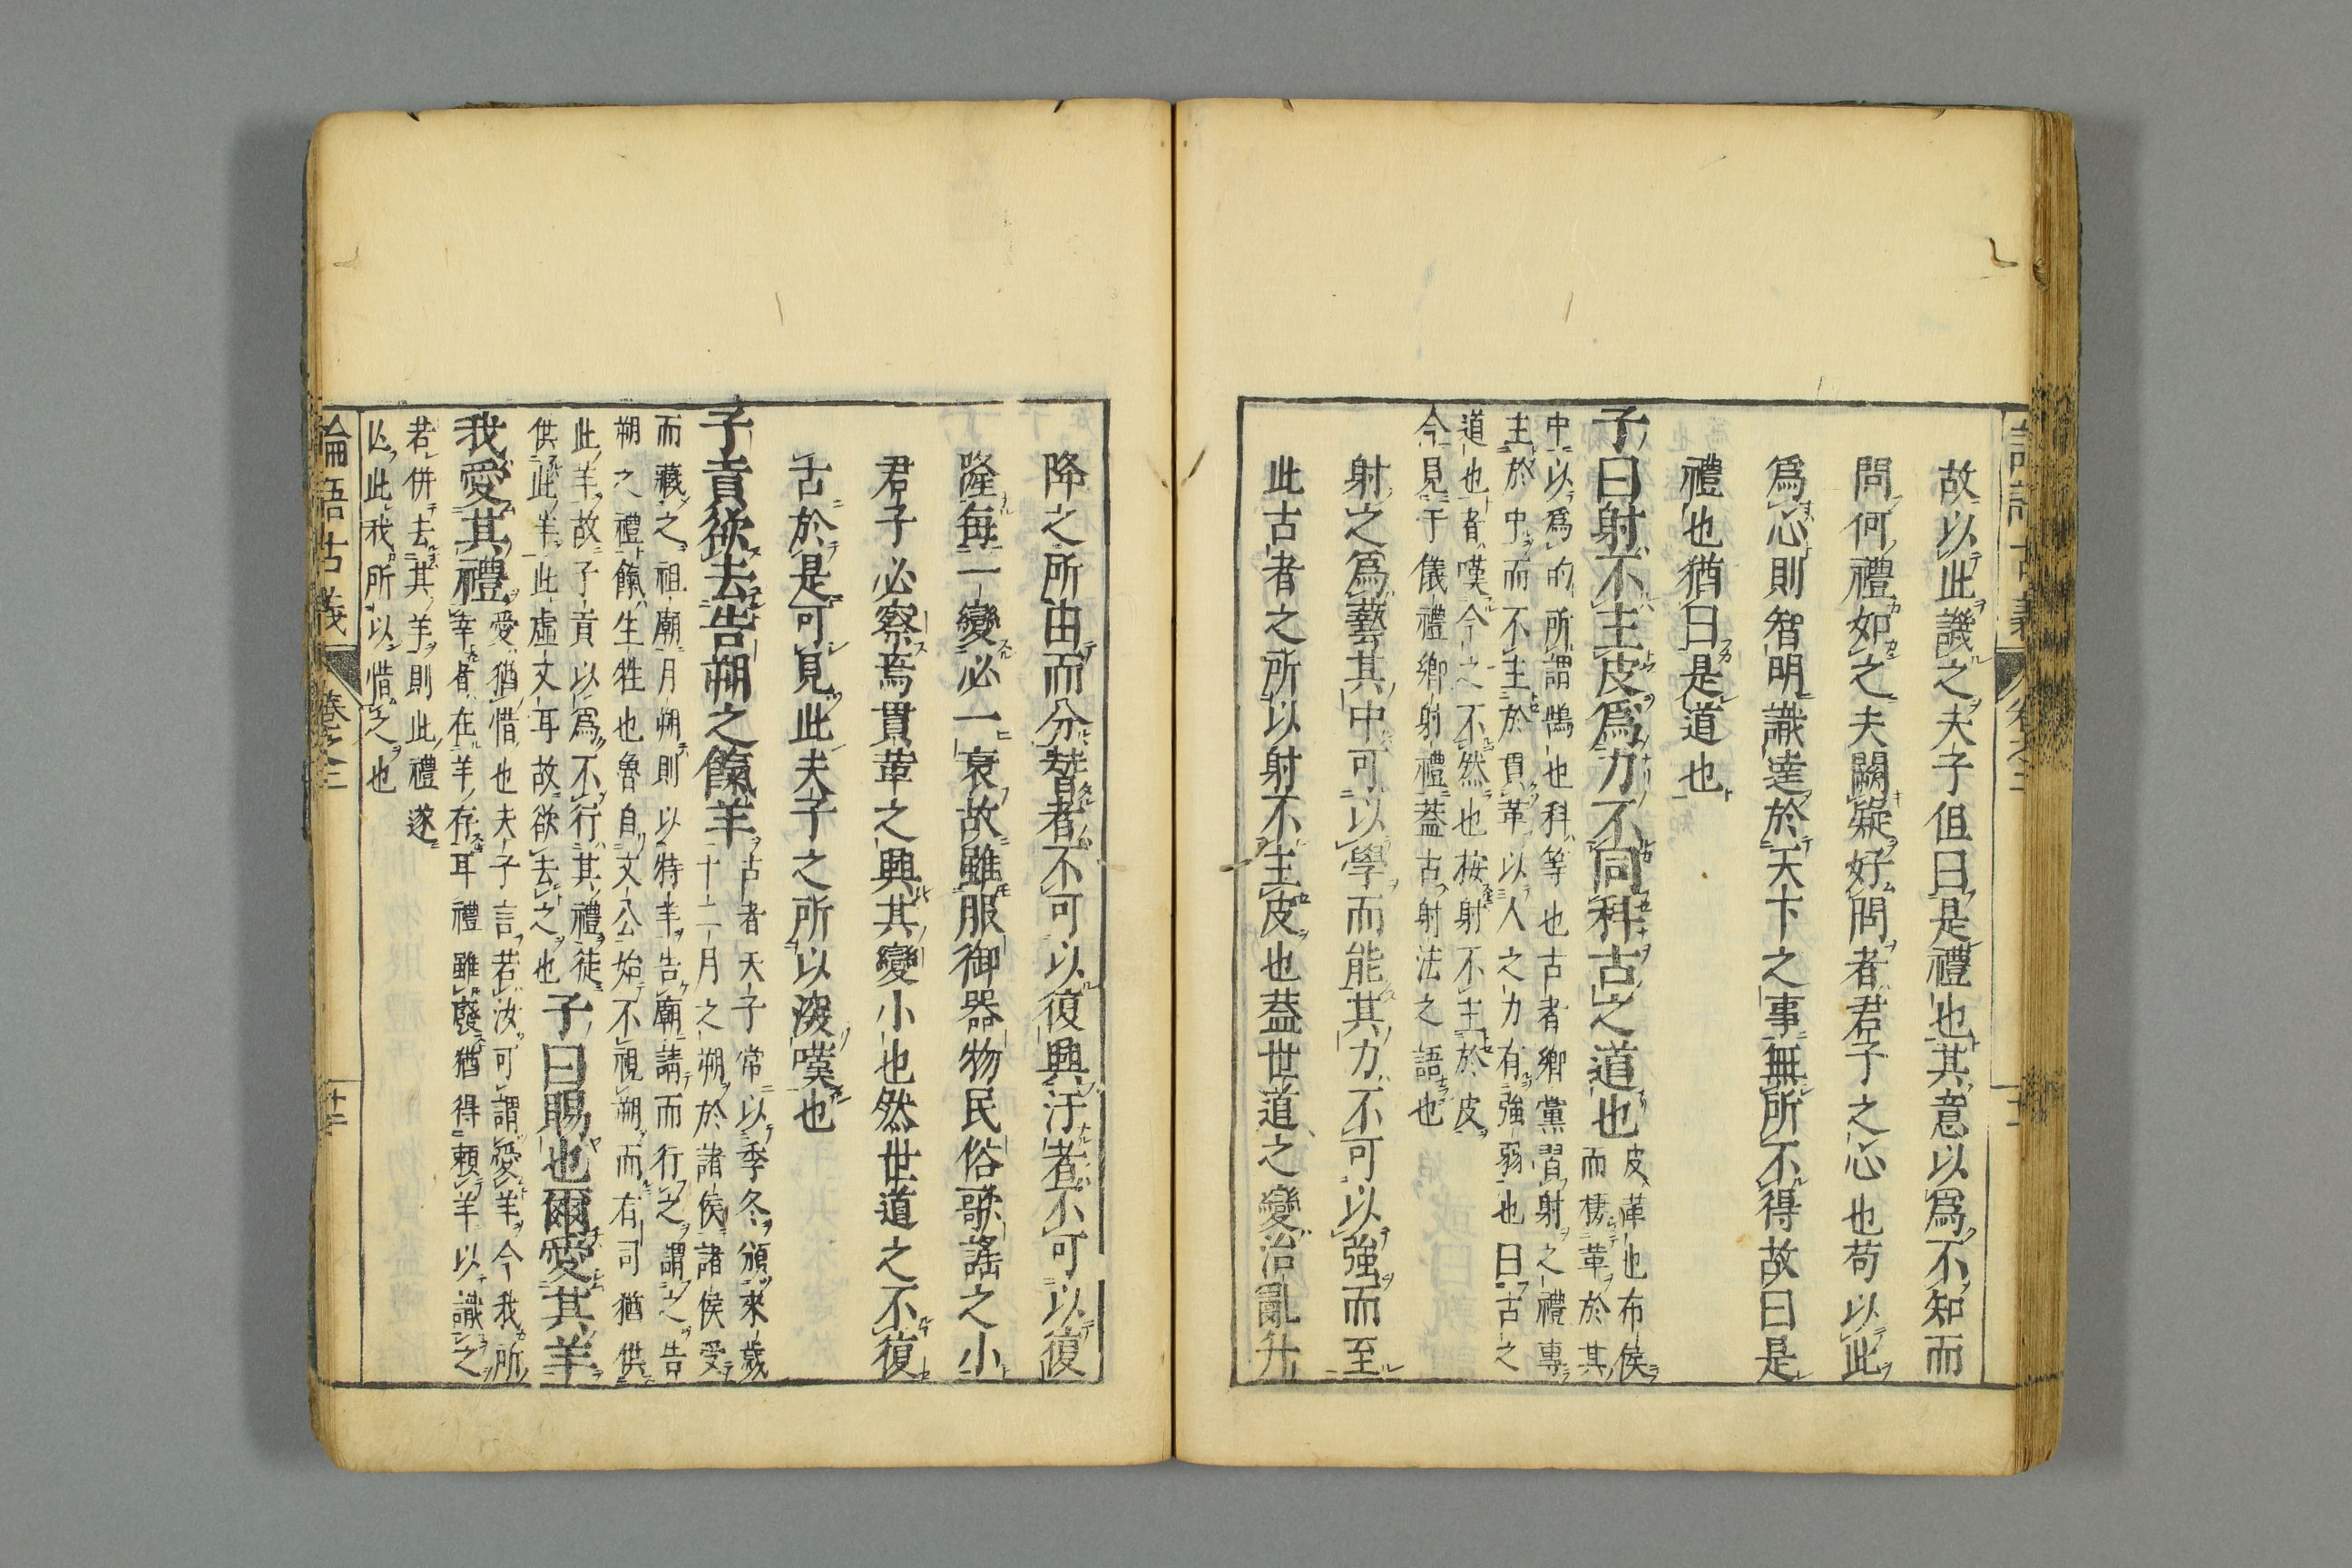 故以此譏之夫子但曰是禮也其意以爲不知而
問何禮如之夫闕疑好問者君子之心也苟以此
爲心則智明識達於天下之事無所不得故曰是
禮也猶曰是道也
子曰射不主皮爲力不同科古之道也
皮革也布侯
而棲革於其
中以爲的所謂鵠也科等也古者鄉黨習射之禮專
主於中而不主於貫革以人之力有強弱也曰古之
道也者嘆今之不然也按射不主於皮
今見于儀禮鄉射禮蓋古射法之語也
射之爲藝其中可以學而能其力不可以強而至
此古者之所以射不主皮也蓋世道之變治亂升
降之所由而分替者不可以復興汙者不可以復
隆每一變必一衰故雖服御器物民俗歌謠之小
君子必察焉貫革之興其變小也然世道之不復
古於是可見此夫子之所以深嘆也
子貢欲去告朔之餼羊
古者天子常以季冬頒來歲
十二月之朔於諸侯諸侯受
而藏之祖廟月朔則以特羊告廟請而行之謂之告
朔之禮餼生牲也魯自文公始不視朔而有司猶供
此羊故子貢以爲不行其禮徒
供此羊此虛文耳故欲去之也
子曰賜也爾愛其羊
我愛其禮
愛猶惜也夫子言若汝可謂愛羊今我所
幸者在羊存耳禮雖廢猶得賴羊以識之
若併去其羊則此禮遂
亡此我所以惜之也
論語古義
卷之三
十二